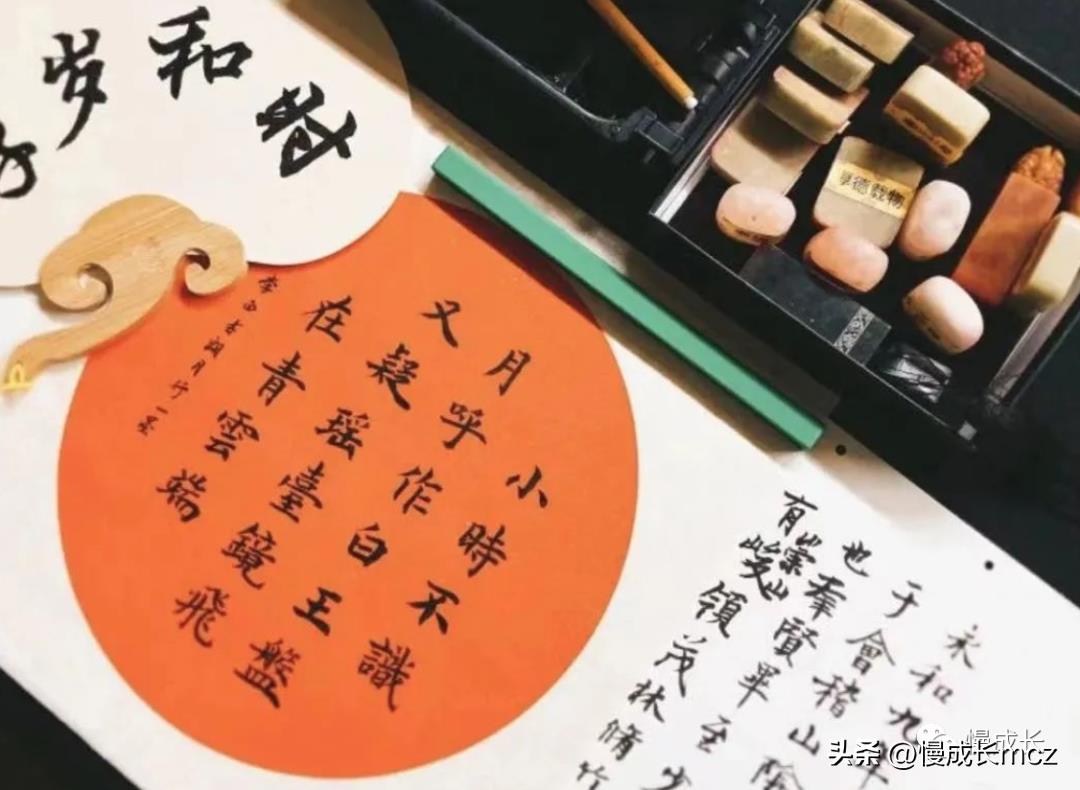 岁和
厚德載物
小時不識
月呼作白王盤
又疑瑶臺鏡飛
在青雲端
古朗月行一
永和九年
于會稽山陰
也羣賢畢至少
有崇山峻領茂林脩竹
慢成长
头条 @慢成长mcz